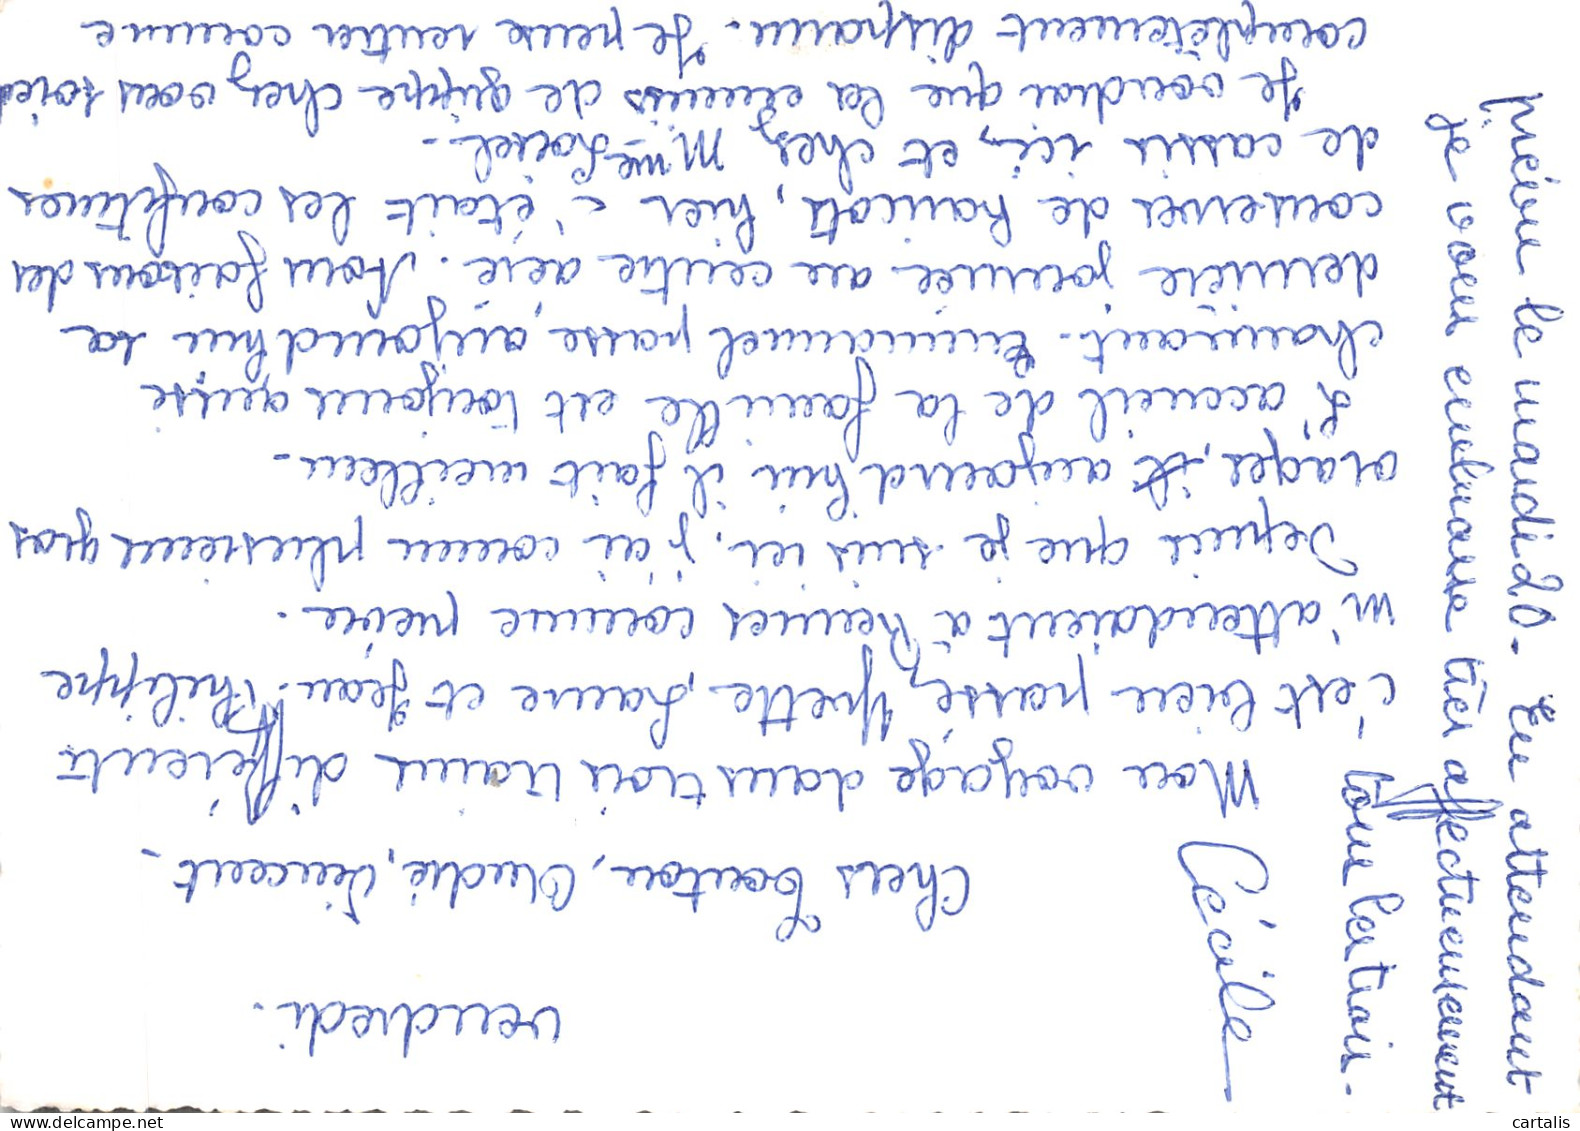 vendredi.
Chers Tonton, Dudie, Vincent -
Mon voyage dans trois trains différents
c'est bien passé, Yvette, Laure et Jean-Philippe
m'attendaient à Rennes comme prévu.
Depuis que je suis ici, j'ai connu plusieurs gros
orages, et aujourd'hui il fait meilleur -
L'accueil de la famille est toujours aussi
charmant - Emmanuel passe aujourd'hui sa
dernière journée au centre aéré. Nous faisons des
conserves de haricots, hier c'était les confitures
de cassis ici, et chez Mme Loriel -
Je voudrai que les ennuis de grippe chez vous soient
complètement disparu. Je pense rentrer comme
prévu le mardi 20 - En attendant
je vous embrasse très affectueusement
tous les trois -
Cécile
cartalis
www.delcampe.net